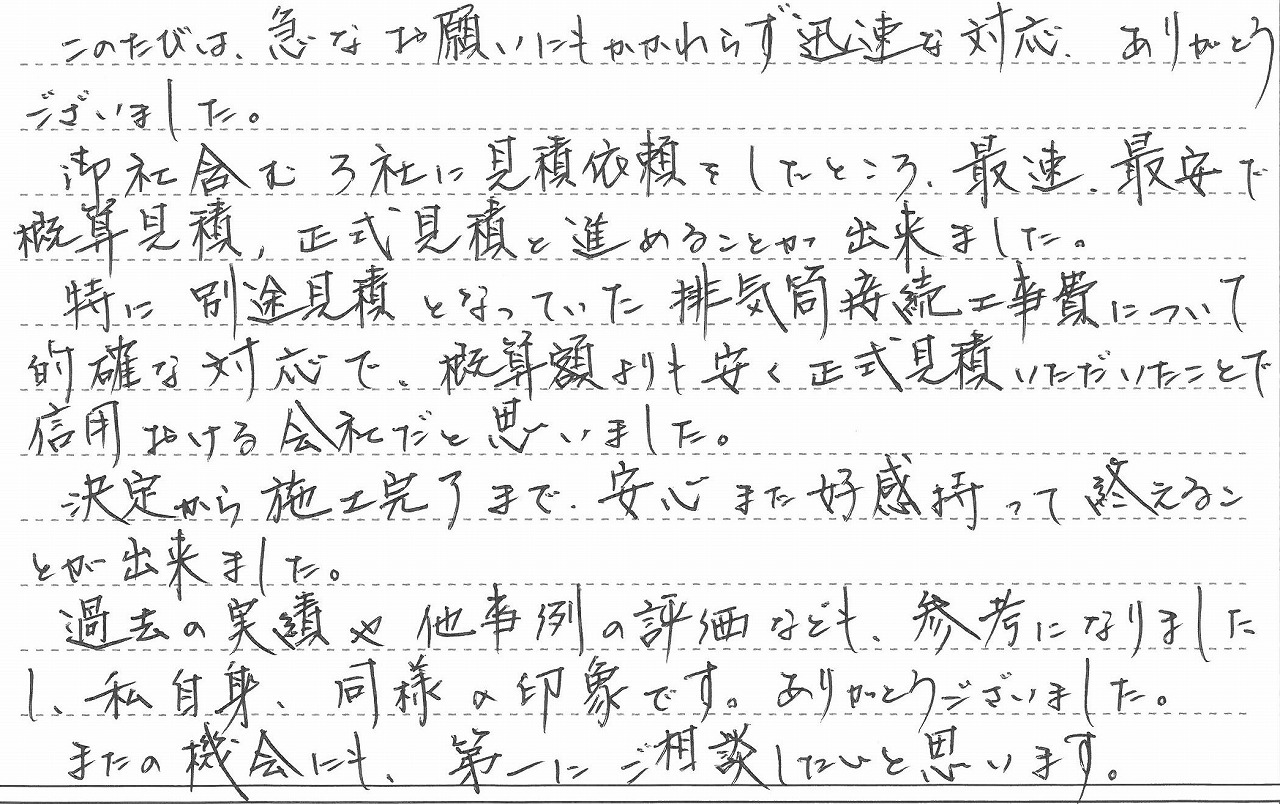 このたびは、急なお願いにもかかわらず迅速な対応、ありがとう
ございました。
御社含む3社に見積依頼をしたところ、最速、最安で
概算見積,正式見積と進めることが出来ました。
特に別途見積となっていた排気筒接続工事費について
的確な対応で、概算額よりも安く正式見積いただいたことで
信用おける会社だと思いました。
決定から施工完了まで、安心また好感持って終えるこ
とが出来ました。
過去の実績や他事例の評価なども、参考になりました
し、私自身、同様の印象です。ありがとうございました。
またの機会にも、第一にご相談したいと思います。